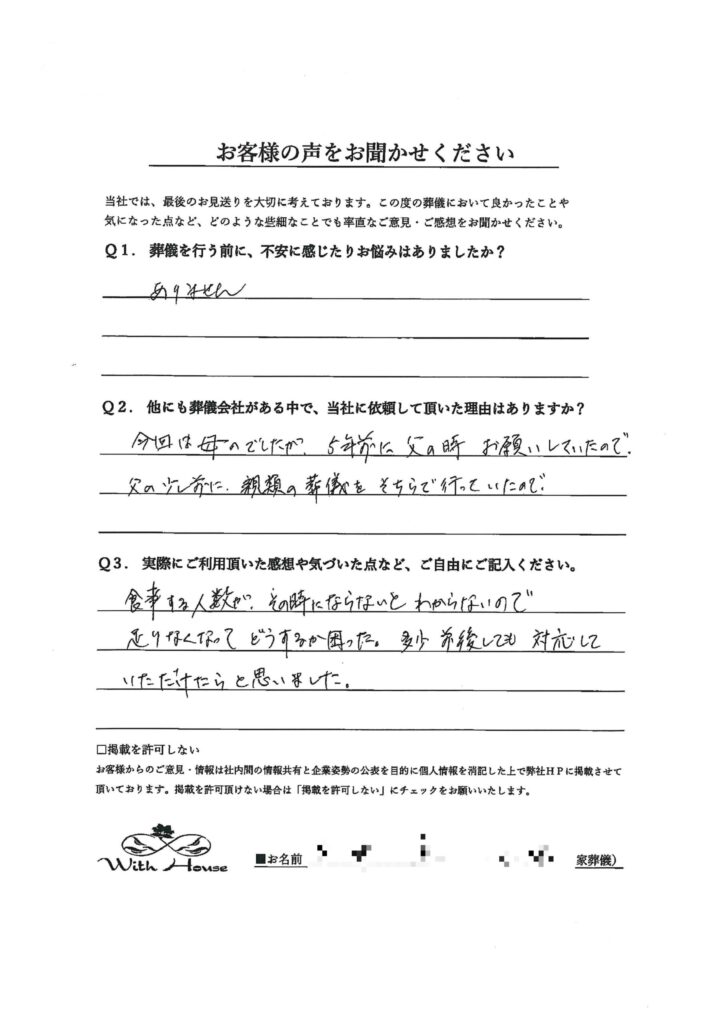 お客様の声をお聞かせください
当社では、最後のお見送りを大切に考えております。この度の葬儀において良かったことや
気になった点など、どのような些細なことでも率直なご意見・ご感想をお聞かせください。
Q1. 葬儀を行う前に、不安に感じたりお悩みはありましたか？
ありません
Q2. 他にも葬儀会社がある中で、当社に依頼して頂いた理由はありますか？
今回は母のでしたが、5年前に父の時お願いしていたので。
父の少し前に、親類の葬儀をそちらで行っていたので。
Q3. 実際にご利用頂いた感想や気づいた点など、ご自由にご記入ください。
食事する人数が、その時にならないとわからないので
足りなくなってどうするか困った。多少前後しても対応して
いただけたらと思いました。
□掲載を許可しない
お客様からのご意見・情報は社内間の情報共有と企業姿勢の公表を目的に個人情報を消記した上で弊社HPに掲載させて
頂いております。掲載を許可頂けない場合は「掲載を許可しない」にチェックをお願いいたします。
With House
■お名前 家葬儀）